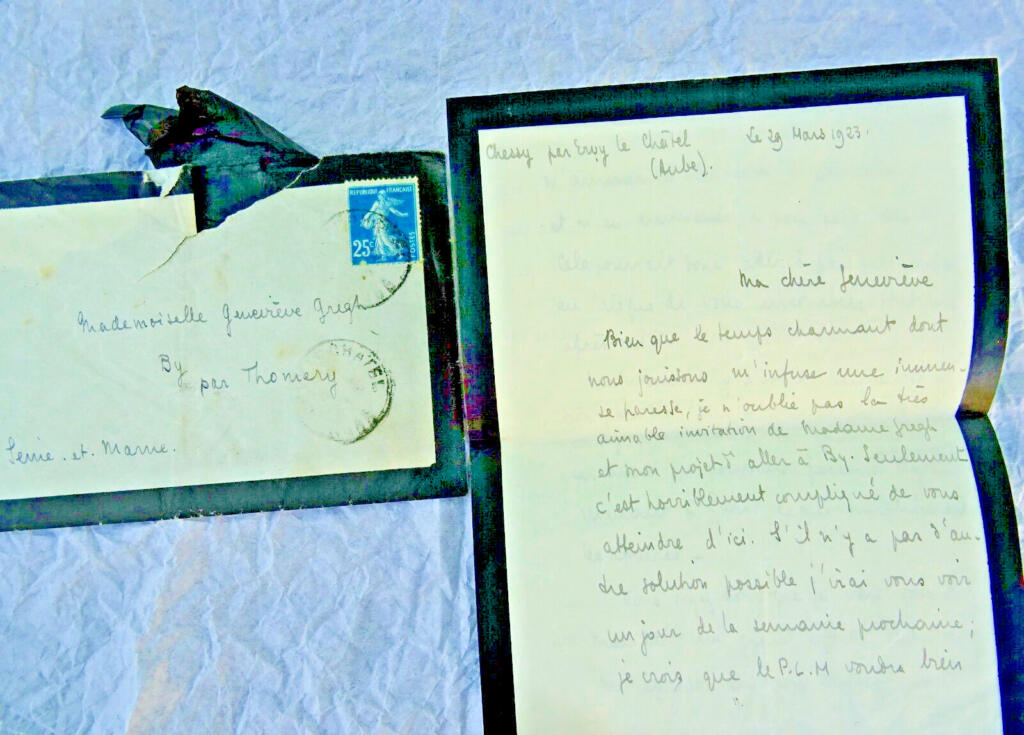 REPUBLIQUE FRANÇAISE
25c
POSTES
Mademoiselle Geneviève Gregh
By
par Thomery
Seine. et. Marne.
CHATEL
Chessy par Ervy le Châtel
Le 29 Mars 1923.
(Aube).
Ma chère Geneviève
Bien que le temps charmant dont
nous jouissons m'infuse une immen-
se paresse, je n'oublie pas la très
aimable invitation de Madame Gregh
et mon projet d'aller à By. Seulement
c'est horriblement compliqué de vous
atteindre d'ici. S'il n'y a pas d'au-
tre solution possible j'irai vous voir
un jour de la semaine prochaine;
je crois que le P.L.M voudra bien